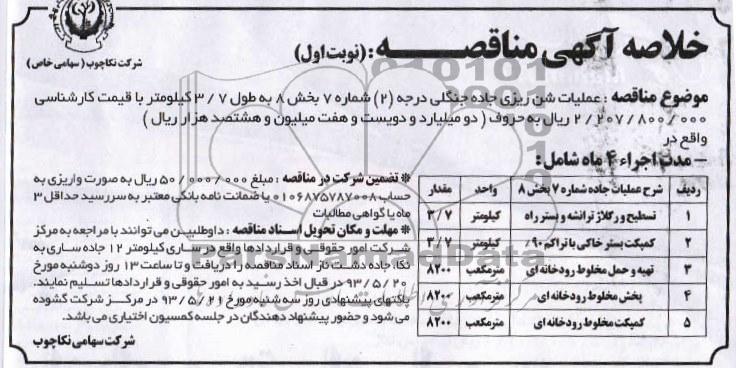 خلاصه آگهی مناقصه : (نوبت اول)
شرکت نکاچوب (سهامی خاص)
موضوع مناقصه : عملیات شن ریزی جاده جنگلی درجه (۲) شماره ۷ بخش ۸ به طول ۳/۷ کیلومتر با قیمت کارشناسی
۲/۲۰۷/۸۰۰/۰۰۰ ریال به حروف ( دو میلیارد و دویست و هفت میلیون و هشتصد هزار ریال )
واقع در
– مدت اجراء ۴ ماه شامل :
ردیف شرح عملیات جاده شماره ۷ بخش ۸ واحد مقدار
۱ تسطیح و رگلاژ ترانشه و بستر راه کیلومتر ۳/۷
۲ کمپکت بستر خاکی با تراکم ۹۰٪ کیلومتر ۳/۷
۳ تهیه و حمل مخلوط رودخانه ای مترمکعب ۸۲۰۰
۴ پخش مخلوط رودخانه ای مترمکعب ۸۲۰۰
۵ کمپکت مخلوط رودخانه ای مترمکعب ۸۲۰۰
* تضمین شرکت در مناقصه : مبلغ ۵۰/۰۰۰/۰۰۰ ریال به صورت واریزی به
حساب ۰۱۰۶۸۷۵۷۸۷۰۰۸ یا ضمانت نامه بانکی معتبر به سررسید حداقل ۳
ماه یا گواهی مطالبات
* مهلت و مکان تحویل اسناد مناقصه : داوطلبین می توانند با مراجعه به مرکز
شرکت امور حقوقی و قراردادها واقع در ساری کیلومتر ۱۲ جاده ساری به
نکا، جاده دشت ناز اسناد مناقصه را دریافت و تا ساعت ۱۳ روز دوشنبه مورخ
۹۳/۵/۲۰ در قبال اخذ رسید به امور حقوقی و قراردادها تسلیم نمایند.
پاکتهای پیشنهادی روز سه شنبه مورخ ۹۳/۵/۲۱ در مرکز شرکت گشوده
می شود و حضور پیشنهاد دهندگان در جلسه کمسیون اختیاری می باشد.
شرکت سهامی نکاچوب
ParsNamadData